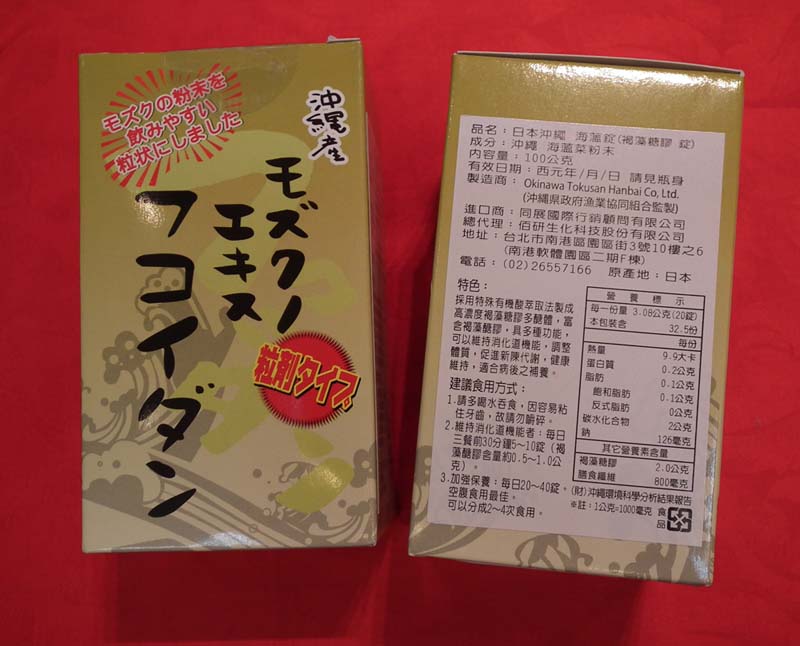 モズクの粉末を
飲みやすい
粒状にしました
沖縄産
モズクノ
エキス
フコイダン
粒剤タイプ
品名：日本沖繩 海蘊錠(褐藻糖膠 錠)
成分：沖繩 海蘊菜粉末
內容量：100公克
有效日期：西元年/月/日 請見瓶身
製造商： Okinawa Tokusan Hanbai Co, Ltd.
(沖縄県政府漁業協同組合監製)
進口商：同展國際行銷顧問有限公司
總代理：佰研生化科技股份有限公司
地址：台北市南港區園區街3號10樓之6
(南港軟體園區二期F棟)
電話：(02)26557166 原產地：日本
特色：
採用特殊有機酸萃取法製成
高濃度褐藻糖膠多醣體，富
含褐藻醣膠，具多種功能，
可以維持消化道機能，調整
體質，促進新陳代謝，健康
維持，適合病後之補養。
建議食用方式：
1.請多喝水吞食，因容易粘
住牙齒，故請勿嚼碎。
2.維持消化道機能者：每日
三餐前30分鐘5～10錠（褐
藻醣膠含量約0.5～1.0公
克）。
3.加強保養：每日20～40錠。
空腹食用最佳。
可以分成2～4次食用。
營養標示
每一份量 3.08公克(20錠)
本包裝含 32.5份
每份
熱量 9.9大卡
蛋白質 0.2公克
脂肪 0.1公克
飽和脂肪 0.1公克
反式脂肪 0公克
碳水化合物 2公克
鈉 126毫克
其它營養素含量
褐藻糖膠 2.0公克
膳食纖維 800毫克
(財)沖繩環境科學分析結果報告
※註：1公克=1000毫克
食品